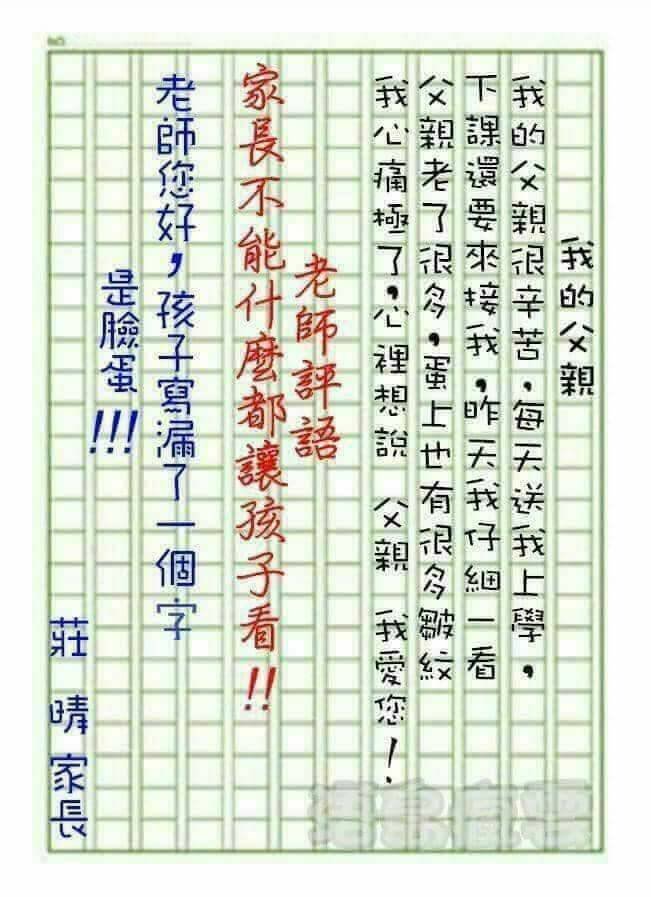 我的父親
我的父親很辛苦．每天送我上學，
下課還要來接我，昨天我仔細一看
父親老了很多，蛋上也有很多皺紋
我心痛極了，心裡想說 父親 我愛您！
老師評語
家長不能什麼都讓孩子看!!
老師您好，孩子寫漏了一個字
是臉蛋!!!
莊 晴 家長